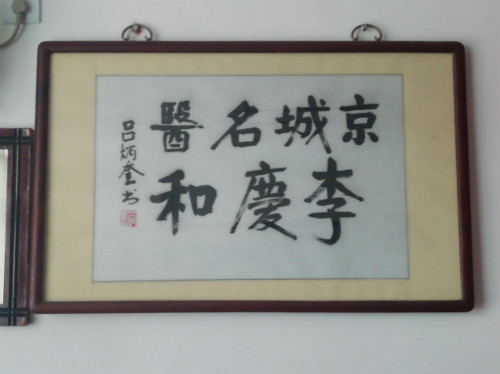 京城名醫
李慶和
吕炳奎书